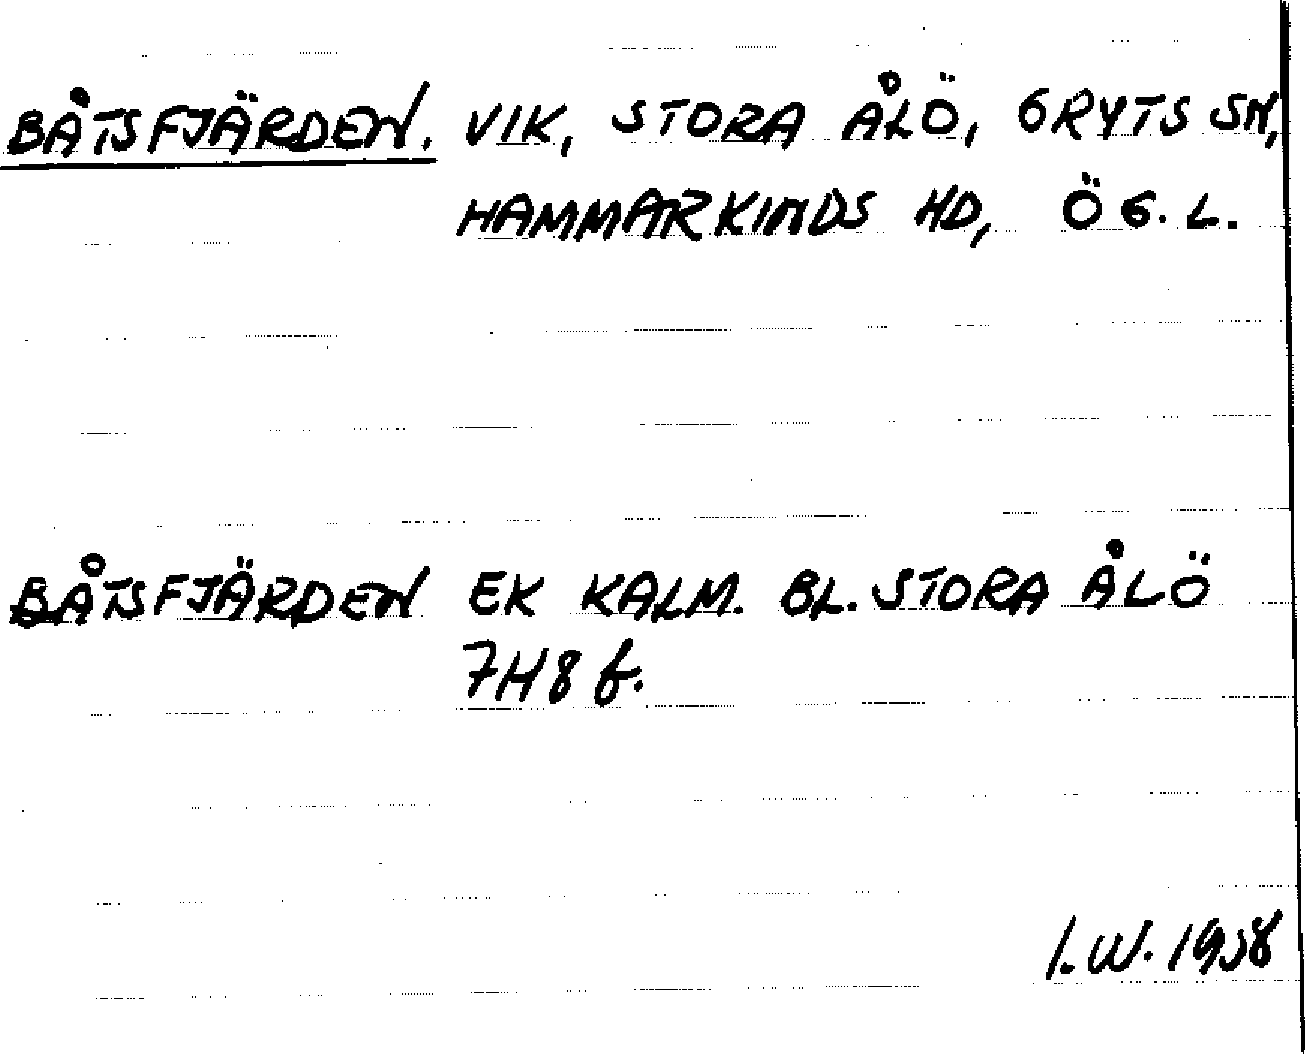 BÅTSFJÄRDEN. VIK, STORA ÅLÖ, GRYTS SN,
HAMMARKINDS HD, ÖG. L.
BÅTSFJÄRDEN EK KALM. BL. STORA ÅLÖ
7H8f.
I.W. 1958